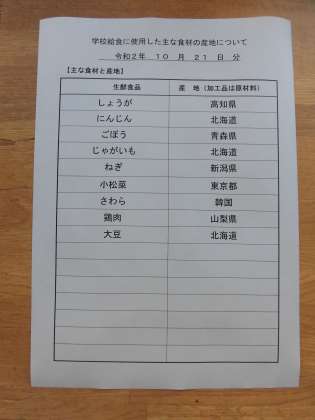 学校給食に使用した主な食材の産地について
令和2年 10 月 21 日 分
【主な食材と産地】
生鮮食品 産 地（加工品は原材料）
しょうが 高知県
にんじん 北海道
ごぼう 青森県
じゃがいも 北海道
ねぎ 新潟県
小松菜 東京都
さわら 韓国
鶏肉 山梨県
大豆 北海道